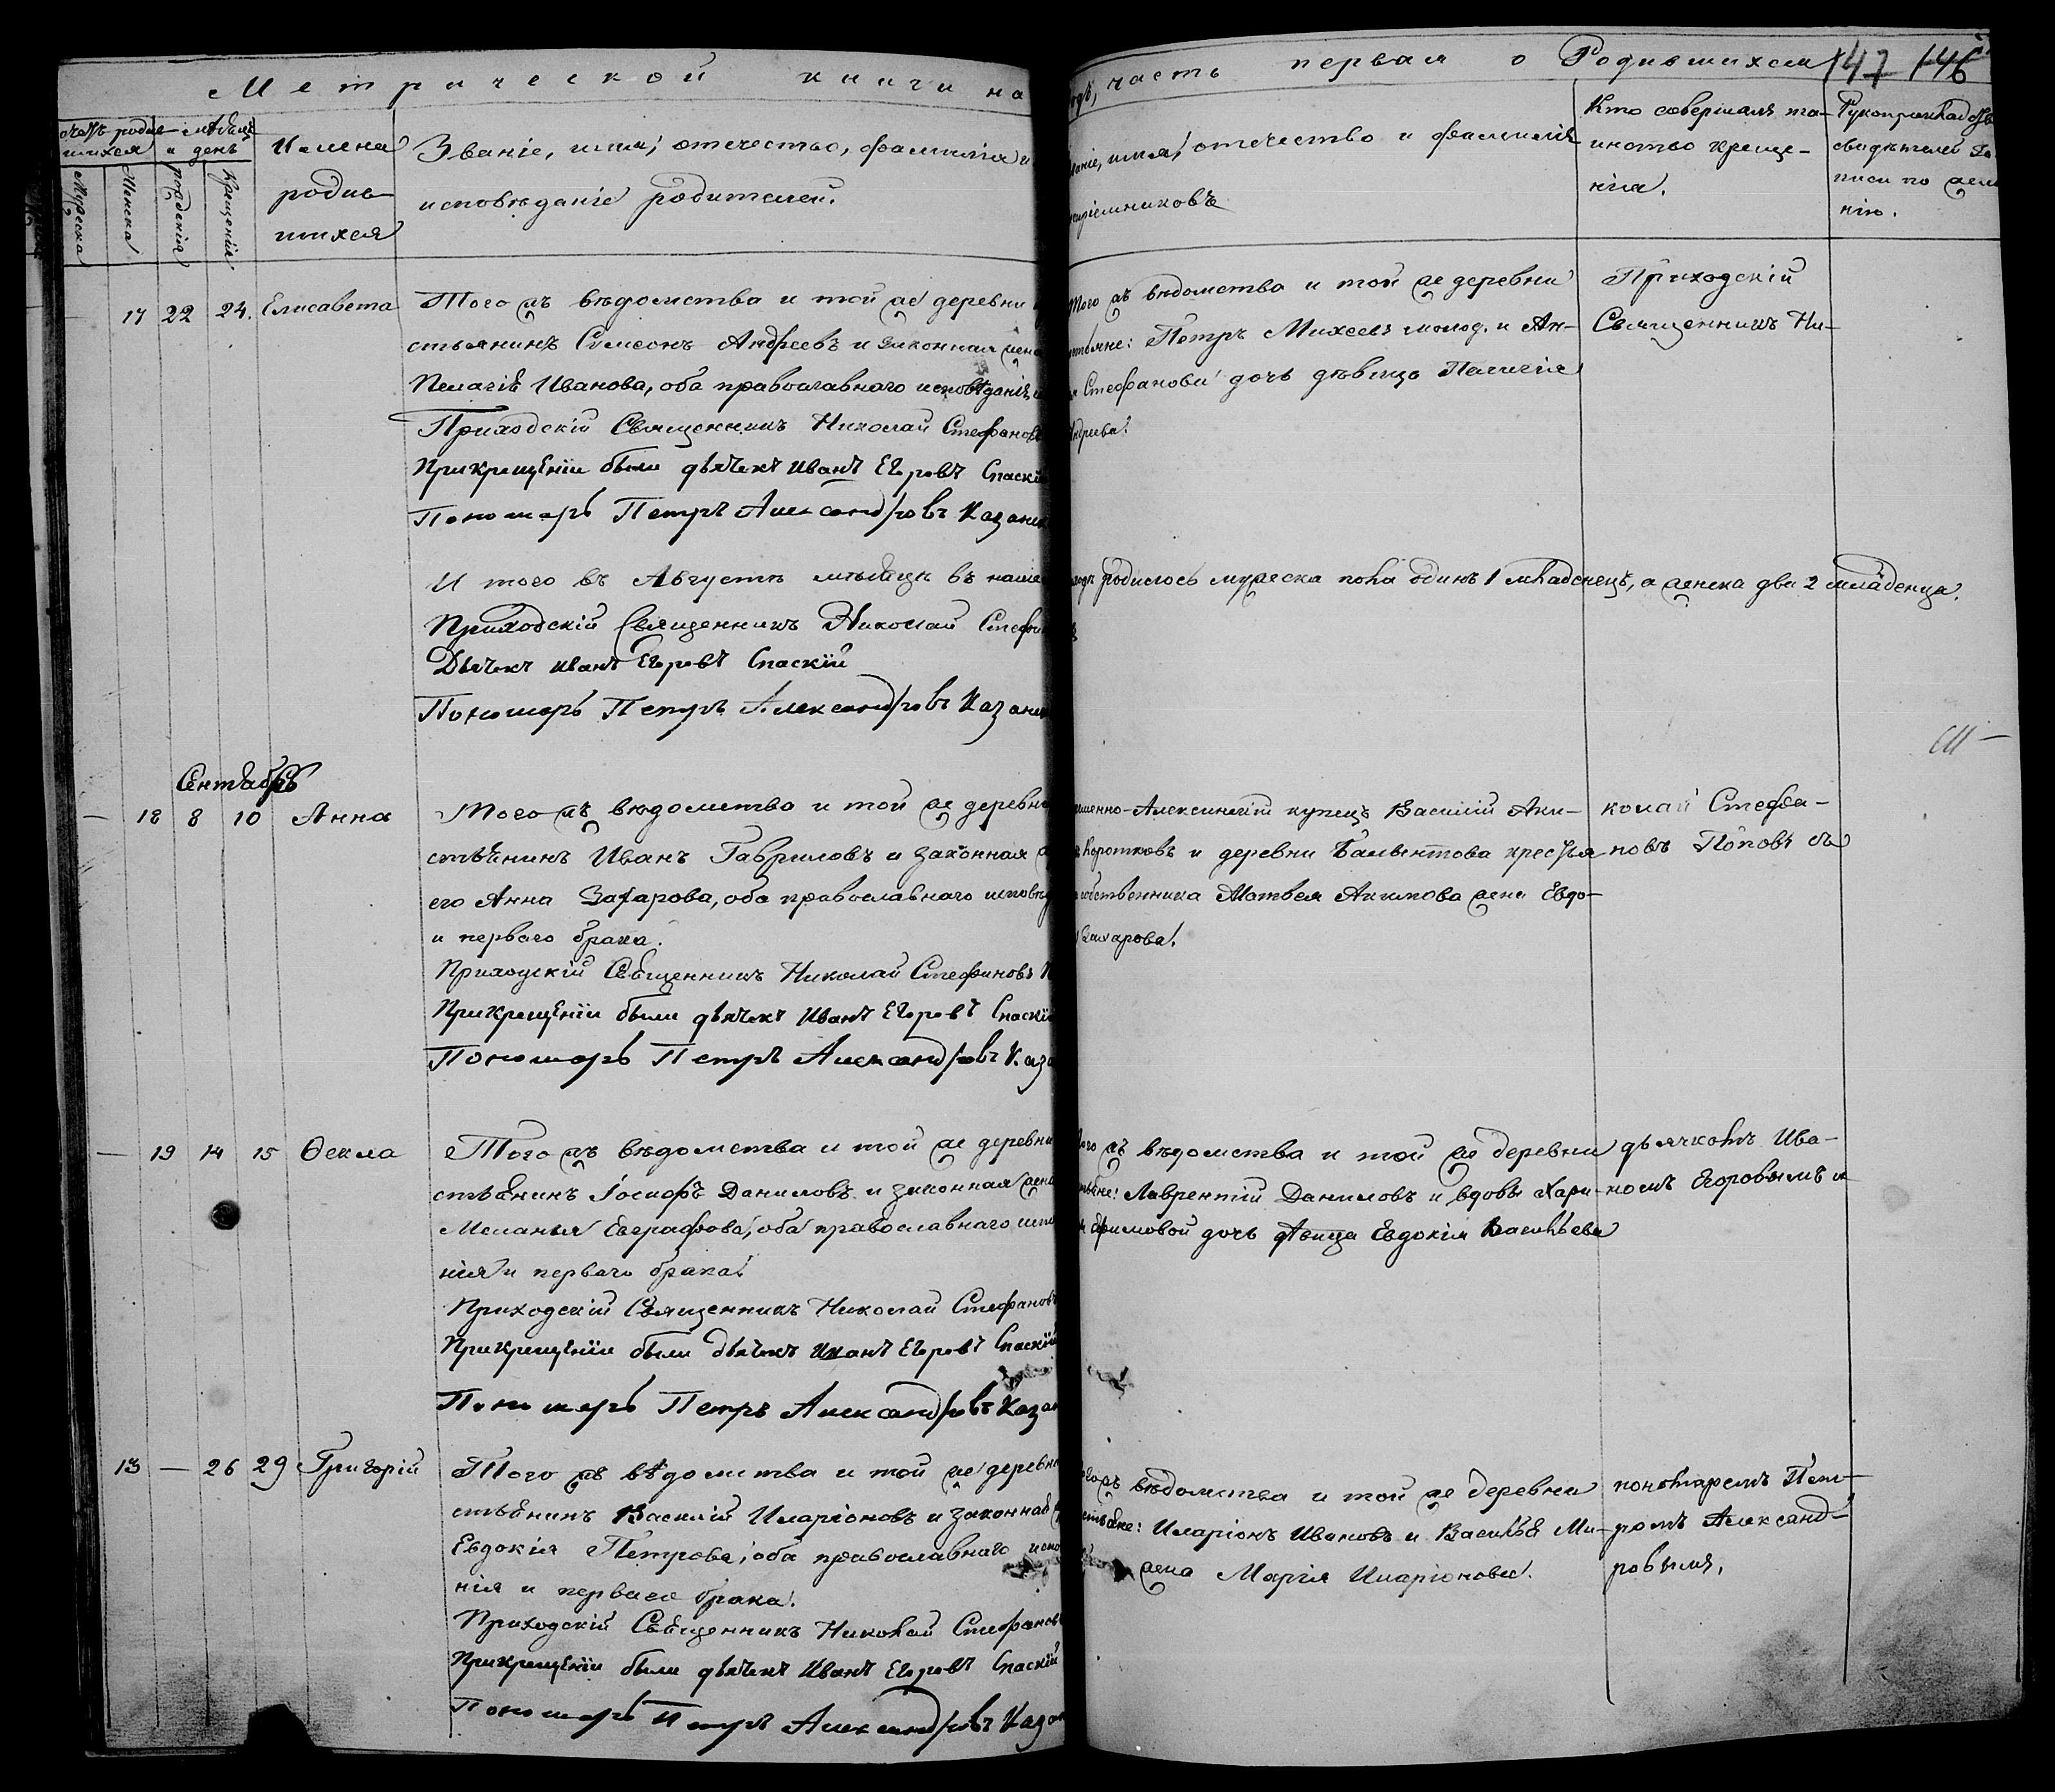 Метрической книги на
годъ, часть первая о Родившихся 147 146
Счетъ родив-
шихся
Мужеска
Женска
мѣсяцъ
и день
рожденія
Крещенія
Имена
родив-
шихся
Званіе, имя, отечество, фамилія и
исповѣданіе родителей.
Званіе, имя, отечество и фамилія
воспріемниковъ
Кто совершалъ та-
инство креще-
нія.
Рукоприкладство
свидѣтелей за-
писи по жела-
нію.
17 22 24. Елисавета
Того жъ вѣдомства и той же деревни
стьянинъ Симеонъ Андреевъ и законная жена
Пелагія Иванова, оба православнаго исповѣданія
Приходскій Священникъ Николай Стефановъ
Прикрещеніи были дьячекъ Иванъ Егоровъ Спаскій
Пономарь Петръ Александровъ Казанск
Того жъ вѣдомства и той же деревни
стьяне: Петръ Михеевъ молод. и Ан-
Стефанови дочь дѣвица Пелагія
Андреева.
Приходскій
Священникъ Ни-
И того въ Августѣ мѣсяцѣ въ наше
приходѣ родилось мужеска пола одинъ 1 младенецъ, а женска два 2 младенца.
Приходскій Священникъ Николай Стефан
Дьячекъ Иванъ Егоровъ Спаскій
Пономарь Петръ Александровъ Казанск
Сентябрь
— 18 8 10 Анна
Того жъ вѣдомства и той же деревни
стьянинъ Иванъ Гавриловъ и законная ж
его Анна Захарова, оба православнаго исповѣд
и перваго брака.
Приходскій Священникъ Николай Стефановъ П
Прикрещеніи были дьячекъ Иванъ Егоровъ Спаскій
Пономарь Петръ Александровъ Каза
менно-Алексинскій купецъ Василій Аки-
Коротковъ и деревни крестья
собственника Матвея Акимова жена Евдо-
Захарова.
колай Стефа-
новъ Поповъ съ
— 19 14 15 Ѳекла
Того жъ вѣдомства и той же деревни
стьянинъ Іосифъ Даниловъ и законная жена
Меланья Евграфова, оба православнаго испо
нія и перваго брака.
Приходскій Священникъ Николай Стефановъ
Прикрещеніи были дьячекъ Иванъ Егоровъ Спаскій
Пономарь Петръ Александровъ Казан
Того жъ вѣдомства и той же деревни
стьяне: Лаврентій Даниловъ и вдовы Хари-
Ефимовой дочь дѣвица Евдокія Васильева
дьячкомъ Ива-
номъ Егоровымъ и
13 — 26 29 Григорій
Того жъ вѣдомства и той же деревни
стьянинъ Василій Иларіоновъ и законная
Евдокія Петрова, оба православнаго испо
нія и перваго брака.
Приходскій Священникъ Николай Стефановъ
Прикрещеніи были дьячекъ Иванъ Егоровъ Спаскій
Пономарь Петръ Александровъ Казан
Того жъ вѣдомства и той же деревни
стьяне: Иларіонъ Ивановъ и Василья Ми-
жена Марія Иларіонова.
пономаремъ Пет-
ромъ Александ-
ровымъ.